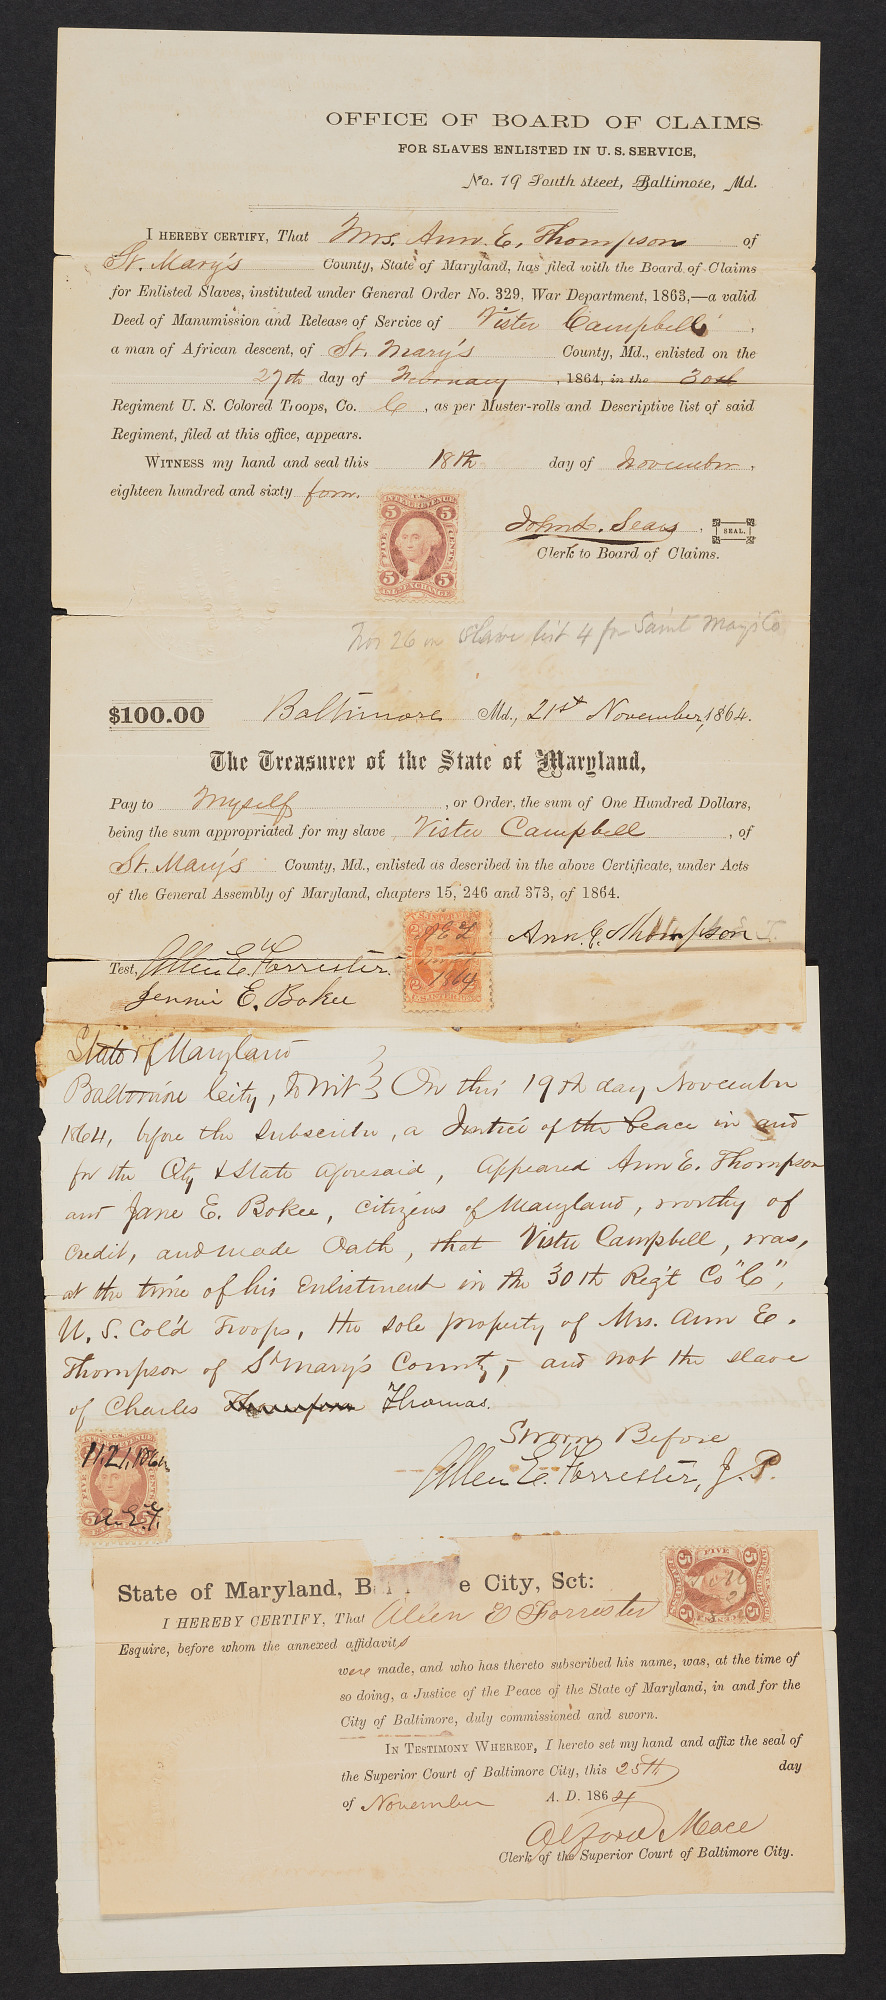 OFFICE OF BOARD OF CLAIMS
FOR SLAVES ENLISTED IN U. S. SERVICE,
No. 19 South street, Baltimore, Md.
I HEREBY CERTIFY, That Mrs. Ann. E. Thompson of
St. Mary's County, State of Maryland, has filed with the Board of Claims
for Enlisted Slaves, instituted under General Order No. 329, War Department, 1863,—a valid
Deed of Manumission and Release of Service of Vister Campbell,
a man of African descent, of St. Mary's County, Md., enlisted on the
27th day of February, 1864, in the 30th
Regiment U. S. Colored Troops, Co. C, as per Muster-rolls and Descriptive list of said
Regiment, filed at this office, appears.
WITNESS my hand and seal this 18th day of November,
eighteen hundred and sixty four.
U.S.
INTER. REVENUE
5 5
FIVE CENTS
5 5
INL. EXCHANGE
John L. Sears, SEAL.
Clerk to Board of Claims.
Nos 26 on Slave list 4 for Saint Mary's Co
$100.00 Baltimore Md., 21st November, 1864.
The Treasurer of the State of Maryland,
Pay to Myself, or Order, the sum of One Hundred Dollars,
being the sum appropriated for my slave Vister Campbell, of
St. Mary's County, Md., enlisted as described in the above Certificate, under Acts
of the General Assembly of Maryland, chapters 15, 246 and 373, of 1864.
Ann. E. Thompson
1864
Test, Allen E. Forrester
Jennie E. Bokee
State of Maryland
Baltimore City, to wit } On this 19th day November
1864, before the subscriber, a Justice of the Peace in and
for the City & State aforesaid, appeared Ann E. Thompson
and Jane E. Bokee, citizens of Maryland, worthy of
credit, and made Oath, that Vister Campbell, was,
at the time of his Enlistment in the 30th Reg't Co "C",
U. S. Col'd Troops, the sole property of Mrs. Ann E.
Thompson of St Mary's County, and not the slave
of Charles Thompson Thomas.
Sworn Before
Allen E. Forrester, J. P.
11.21.1864
A.E.F.
State of Maryland, B e City, Sct:
I HEREBY CERTIFY, That Allen E Forrester
Esquire, before whom the annexed affidavits
were made, and who has thereto subscribed his name, was, at the time of
so doing, a Justice of the Peace of the State of Maryland, in and for the
City of Baltimore, duly commissioned and sworn.
IN TESTIMONY WHEREOF, I hereto set my hand and affix the seal of
the Superior Court of Baltimore City, this 25th day
of November A. D. 1864
Alford Mace
Clerk of the Superior Court of Baltimore City.